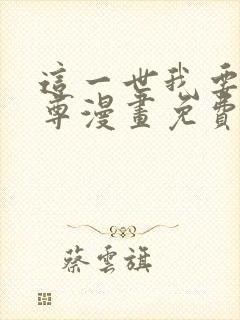 這一世我要
尊漫畫免費
蔡雲旗